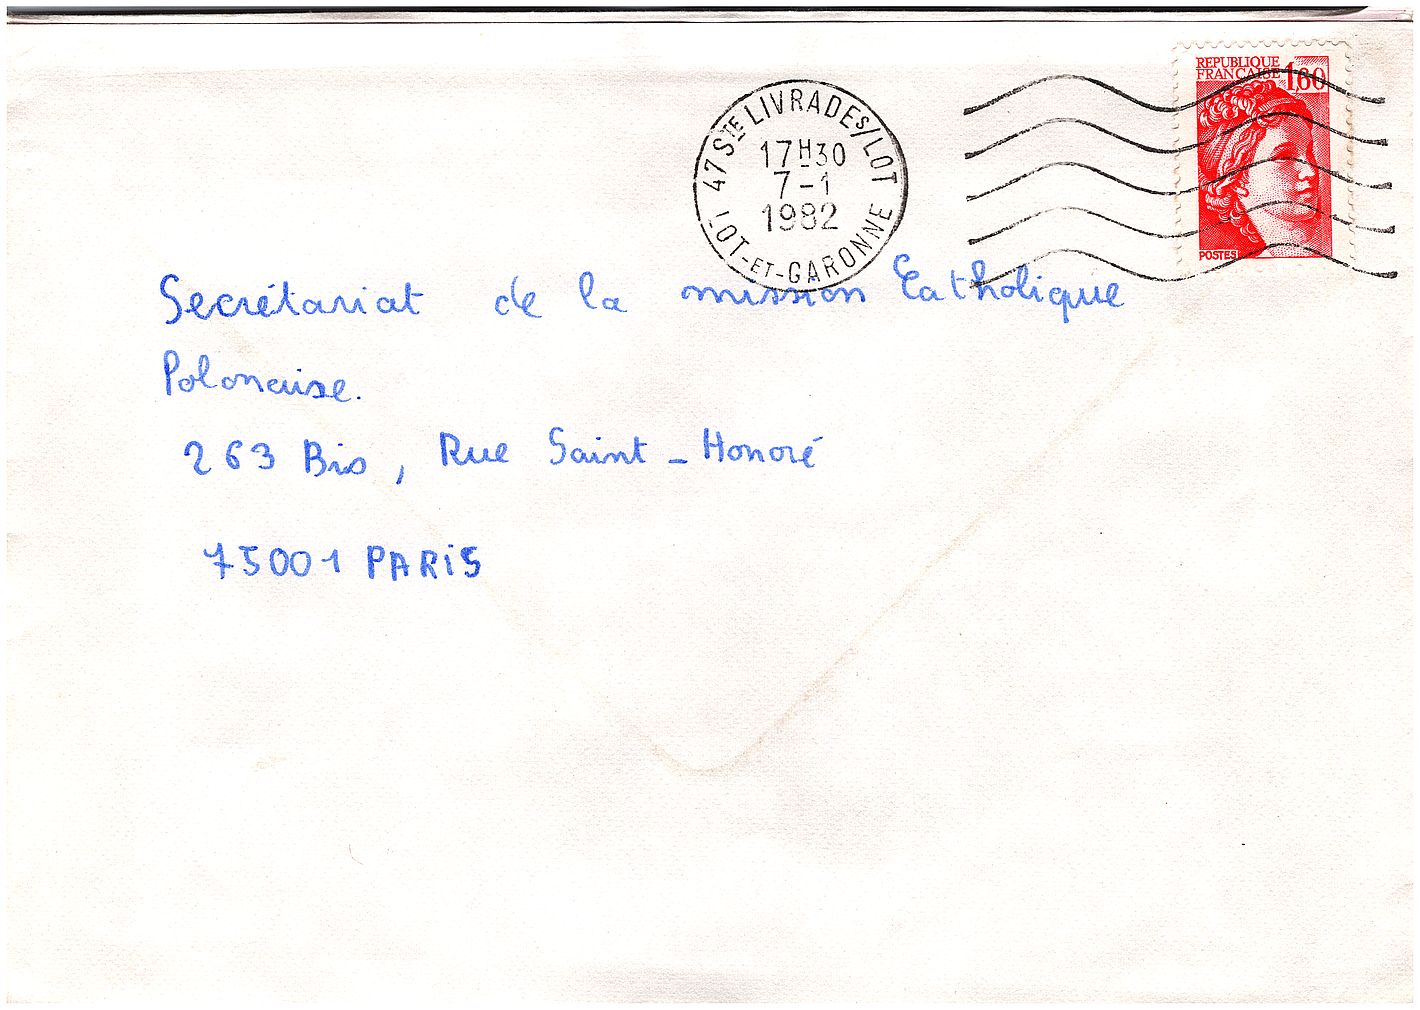 REPUBLIQUE
FRANCAISE 1,60
POSTES
47 STE LIVRADES/LOT
17H30
7-1
1982
LOT-ET-GARONNE
Secrétariat de la mission Catholique
Polonaise.
263 Bis, Rue Saint-Honoré
75001 PARIS